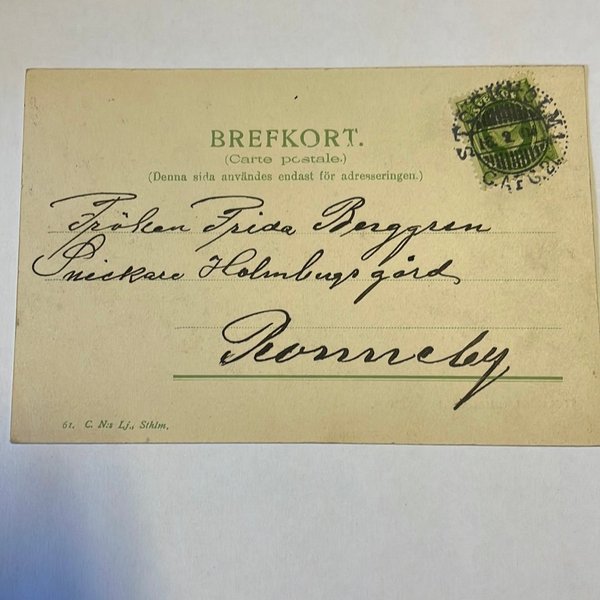 BREFKORT.
(Carte postale.)
(Denna sida användes endast för adresseringen.)
Fröken Frida Berggren
Snickare Holmbergs gård
Ronneby
61. C. N:s Lj., Sthlm.